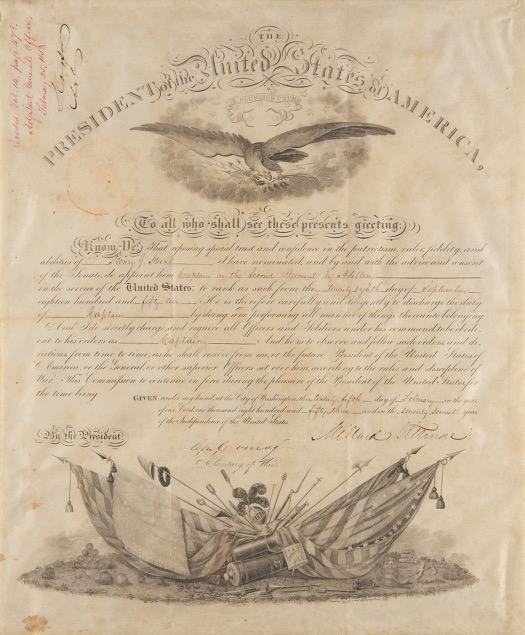 Recorded Vol. 14, page 478.
Adjutant General's Office,
February 25, 1853
THE
PRESIDENT of the United States of AMERICA,
E PLURIBUS UNUM
To all who shall see these presents greeting:
Know Ye, That reposing special trust and confidence in the patriotism, valor, fidelity, and
abilities of Henry J. Hunt I have nominated, and by and with the advice and consent
of the Senate, do appoint him Captain in the Second Regiment of Artillery
in the service of the United States: to rank as such from the twenty eighth day of September
eighteen hundred and fifty two He is therefore carefully and diligently to discharge the duty
of Captain by doing and performing all manner of things thereto belonging.
And I do strictly charge, and require all Officers and Soldiers under his command to be obedi-
ent to his orders as Captain And he is to observe and follow such orders, and di-
rections, from time to time, as he shall receive from me, or the future President of the United States of
America, or the General, or other superior Officers set over him, according to the rules and discipline of
War. This Commission to continue in force during the pleasure of the President of the United States, for
the time being.
GIVEN under my hand, at the City of Washington, this twenty fifth day of February in the year
of our Lord, one thousand eight hundred and fifty three and in the seventy seventh year
of the Independence of the United States.
By the President,
Millard Fillmore
C. M. Conrad
Secretary of War.